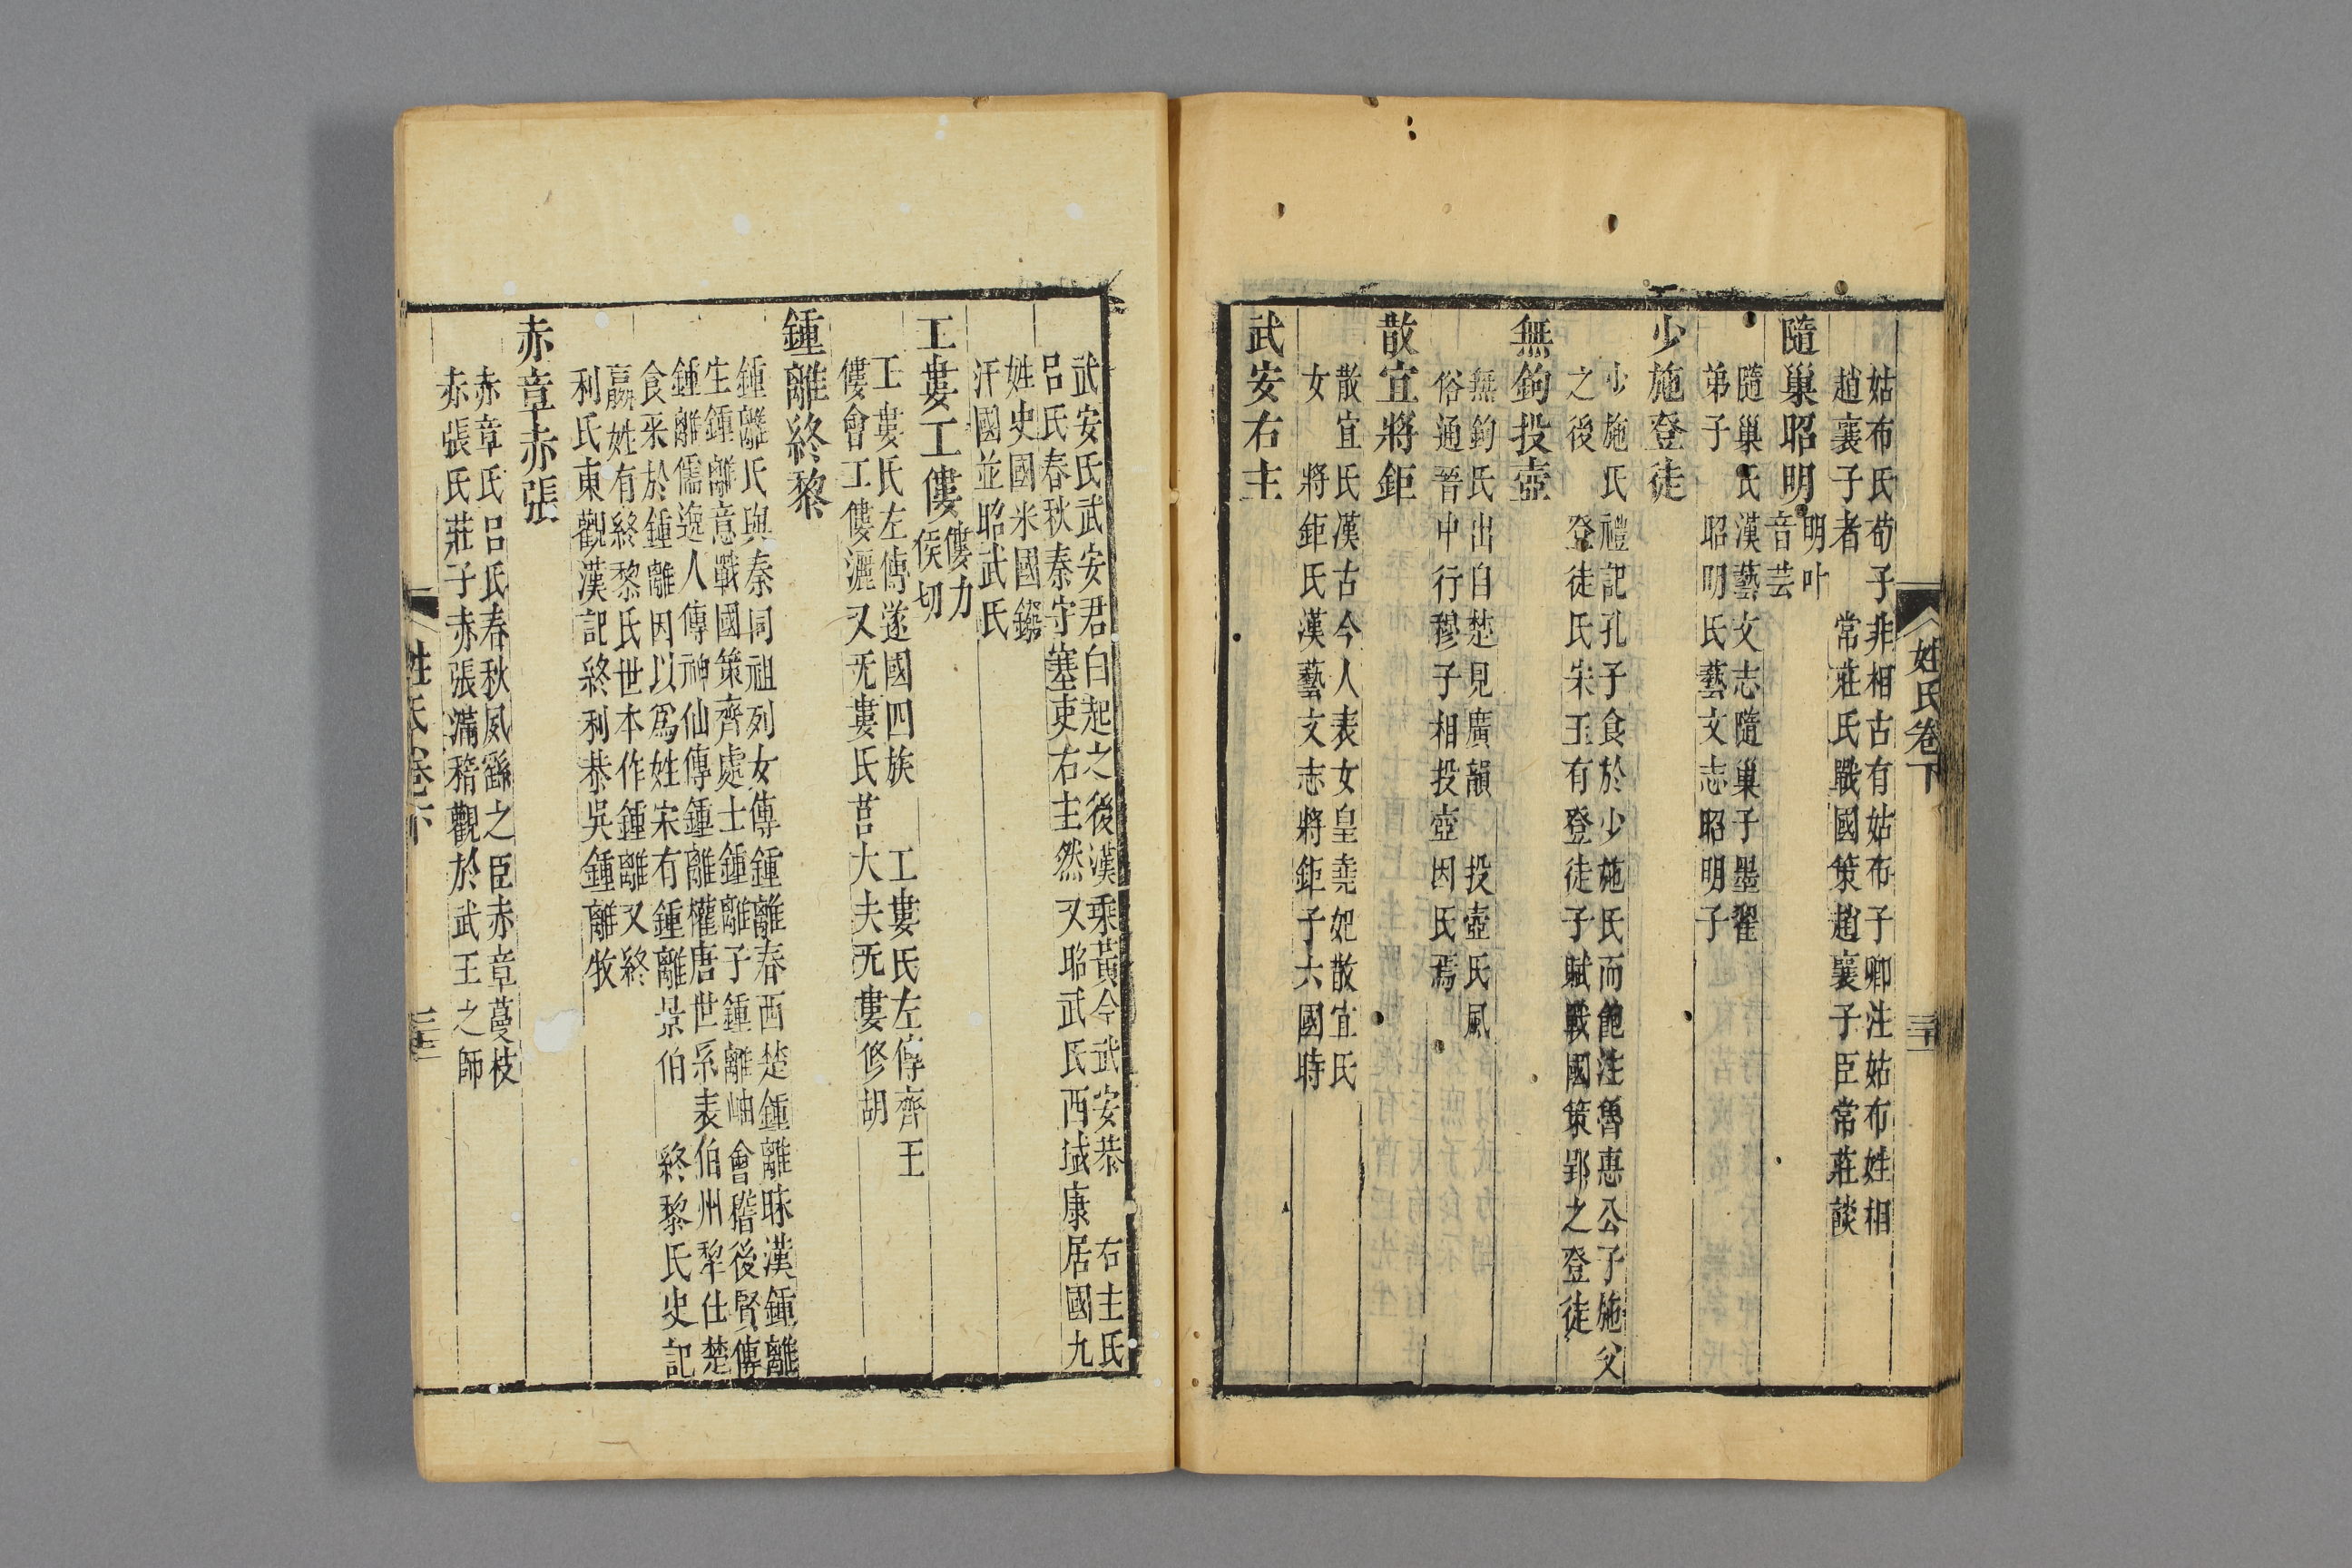 姓氏卷下
姑布氏荀子非相古有姑布子卿注姑布姓相
趙襄子者　常莊氏戰國策趙襄子臣常莊談
隨巢昭明明叶音芸
隨巢氏漢藝文志隨巢子墨翟
弟子　昭明氏藝文志昭明子
少施登徒
少施氏禮記孔子食於少施氏而飽注魯惠公子施父
之後　登徒氏宋玉有登徒子賦戰國策郢之登徒
無鉤投壺
無鉤氏出自楚見廣韻　投壺氏風
俗通晉中行穆子相投壺因氏焉
散宜將鉅
散宜氏漢古今人表女皇堯妃散宜氏
女　將鉅氏漢藝文志將鉅子六國時
武安右主
武安氏武安君白起之後漢乘黃令武安恭　右主氏
呂氏春秋秦守塞吏右主然又昭武氏西域康居國九
姓史國米國
汗國並昭武氏
工婁工僂僂力侯切
工婁氏左傳遂國四族　工婁氏左傳齊王
僂會工僂灑又无婁氏莒大夫无婁修胡
鍾離終黎
鍾離氏與秦同祖列女傳鍾離春西楚鍾離昧漢鍾離
生鍾離意戰國策齊處士鍾離子鍾離岫會稽後賢傳
鍾離儒逸人傳神仙傳鍾離權唐世系表伯州犂仕楚
食采於鍾離因以爲姓宋有鍾離景伯　終黎氏史記
嬴姓有終黎氏世本作鍾離又終
利氏東觀漢記終利恭吳鍾離牧
赤章赤張
赤章氏呂氏春秋夙繇之臣赤章蔓枝
赤張氏莊子赤張滿稽觀於武王之師
姓氏卷下